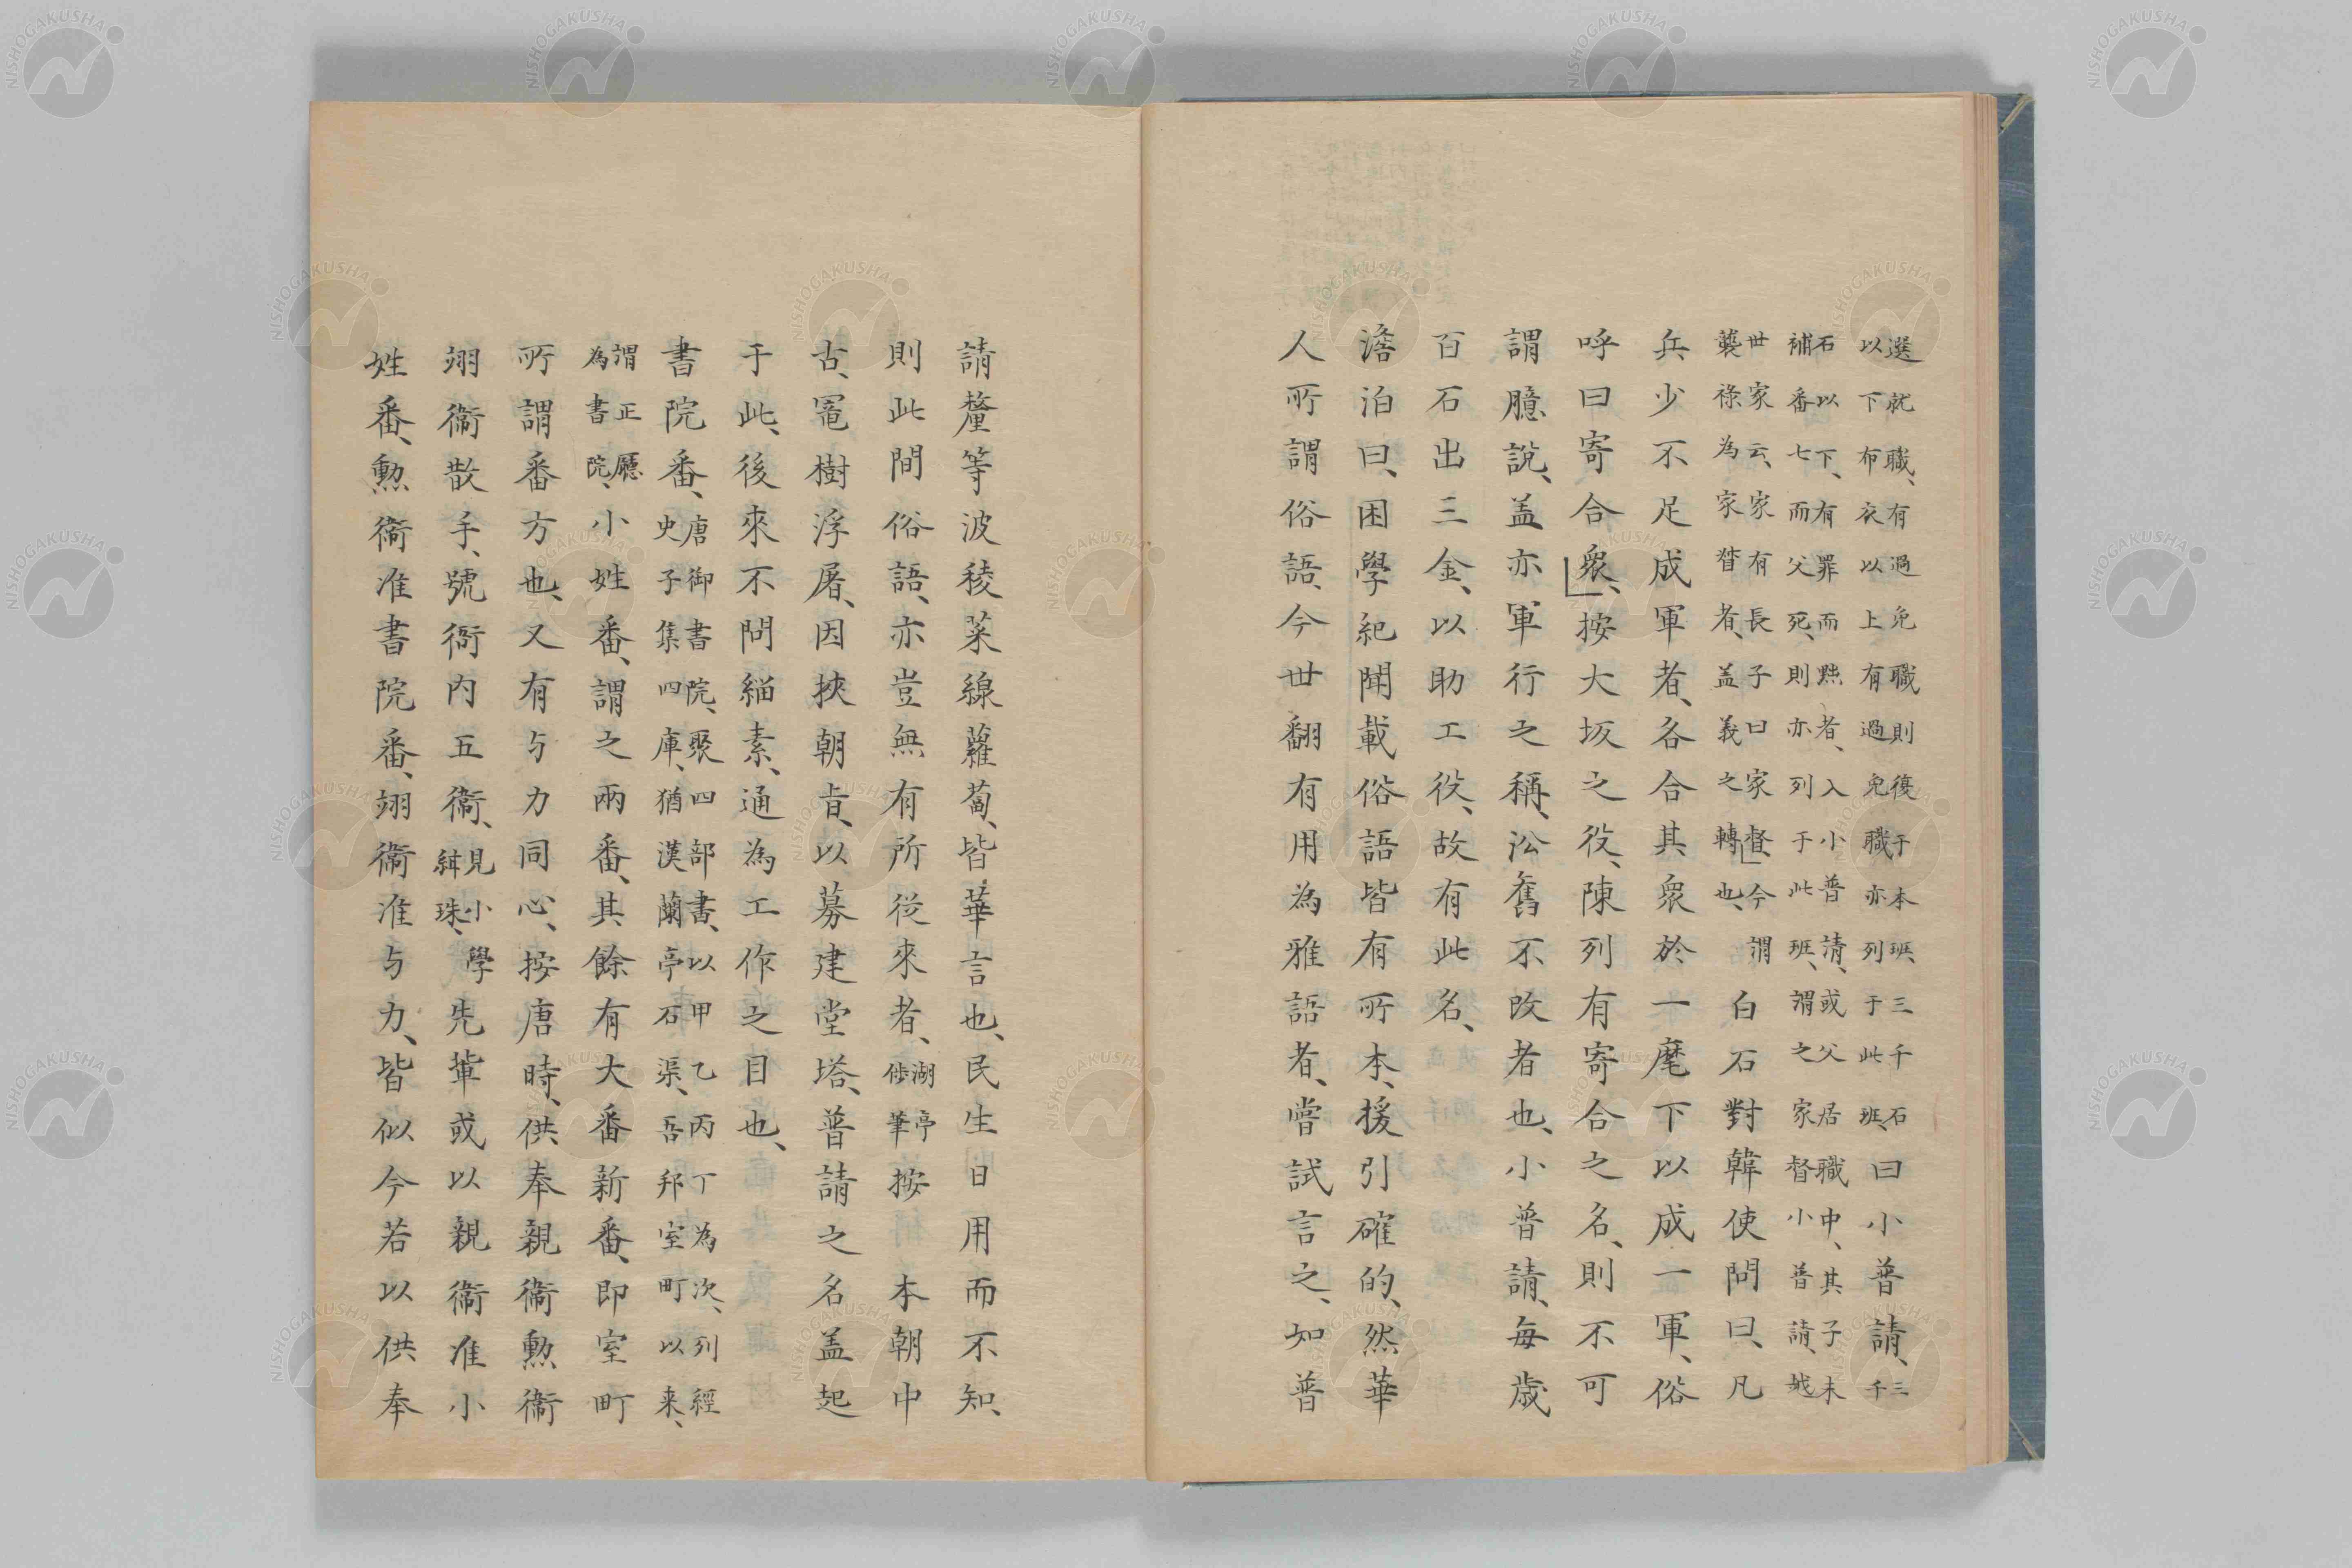 選就職、有過免職則復于本班、三千石
以下布衣以上有過免職亦列于此班、曰小普請、三千
石以下、有罪而黜者、入小普請、或父居職中、其子未
補番七而父死、則亦列于此班、謂之家督小普請、越
世家云、家有長子曰家督、今謂
襲祿為家督者、盖義之轉也、白石對韓使問曰、凡
兵少不足成軍者、各合其衆於一麾下以成一軍、俗
呼曰寄合衆、按大坂之役、陳列有寄合之名、則不可
謂臆說、盖亦軍行之稱、沿舊不改者也、小普請、每歳
百石出三金、以助工役、故有此名、
澹泊曰、困學紀聞載俗語皆有所本、援引確的、然華
人所謂俗語、今世翻有用為雅語者、嘗試言之、知普
請釐等波稜菜線蘿蔔、皆華言也、民生日用而不知、
則此間俗語、亦豈無有所從來者、湖亭涉筆按本朝中
古、樹浮屠、因挾朝旨、以募建堂塔、普請之名盖起
于此、後來不問緇素、通為工作之目也、
書院番、唐御書院、聚四部書、以甲乙丙丁為次、列經
史子集四庫、猶漢蘭亭石渠、吾邦室町以来、
謂正廳為書院、小姓番、謂之兩番、其餘有大番新番、即室町
所謂番方也、又有与力同心、按唐時、供奉親衞勲衞
翊衞散手、號衙内五衞、見小學紺珠、先輩或以親衞准小
姓番、勲衞准書院番、翊衞准与力、皆似今若以供奉